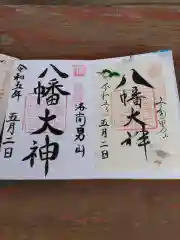 八幡大神
五月二日
洛南男山
八幡大神
令和五年
五月二日